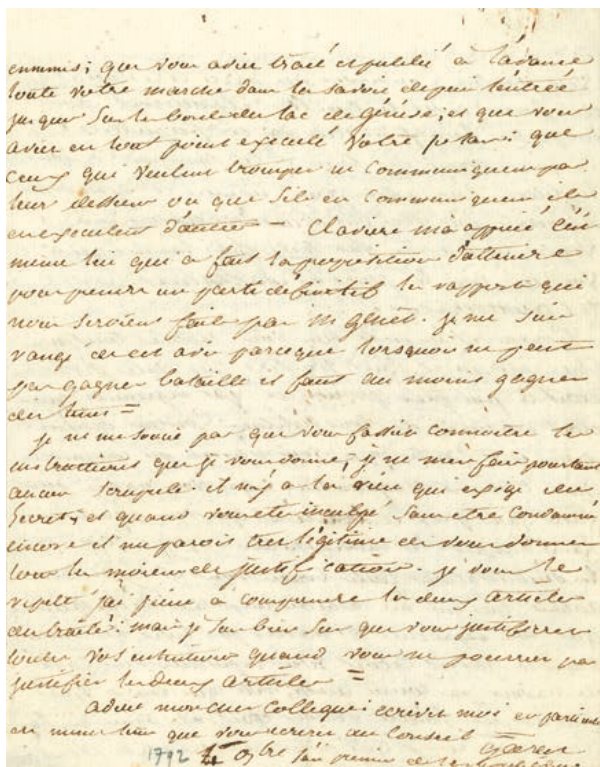 ennemis; que vous aviez tracé et publié à l'avance
toute votre marche dans la Savoie depuis l'entrée
jusques sur les bords du lac de Génève; et que vous
aviez en tout point executé votre plan; que
ceux qui veulent tromper ne communiquent pas
leur dessein ou que s'ils en communiquent ils
en executent d'autres = Claviere m'a appuié c'est
meme lui qui a fait la proposition d'attendre
pour prendre un parti definitif le rapport qui
nous seroient fait par m genêt. je me suis
rangé de cet avis parceque lorsqu'on ne peut
pas gagner bataille il faut au moins gagner
du tems =
je ne me soucie pas que vous fassiez connoitre les
instructions que je vous donne; je ne m'en fais pourtant
aucun scrupule. il n'y a là rien qui exige du
secret, et quand vous etes inculpé sans etre condamné
encore il me parois tres légitime de vous donner
tous les moiens de justification. je vous le
repete j'ai peine à comprendre les deux articles
du traité: mais je suis bien sur que vous justifierez
toutes vos intentions quand vous ne pourriez pas
justifier les deux articles =
adieu mon cher collegue: ecrivez moi en particulier
en meme tems que vous ecrirez au Conseil
1792 9bre l'an premier de la republique